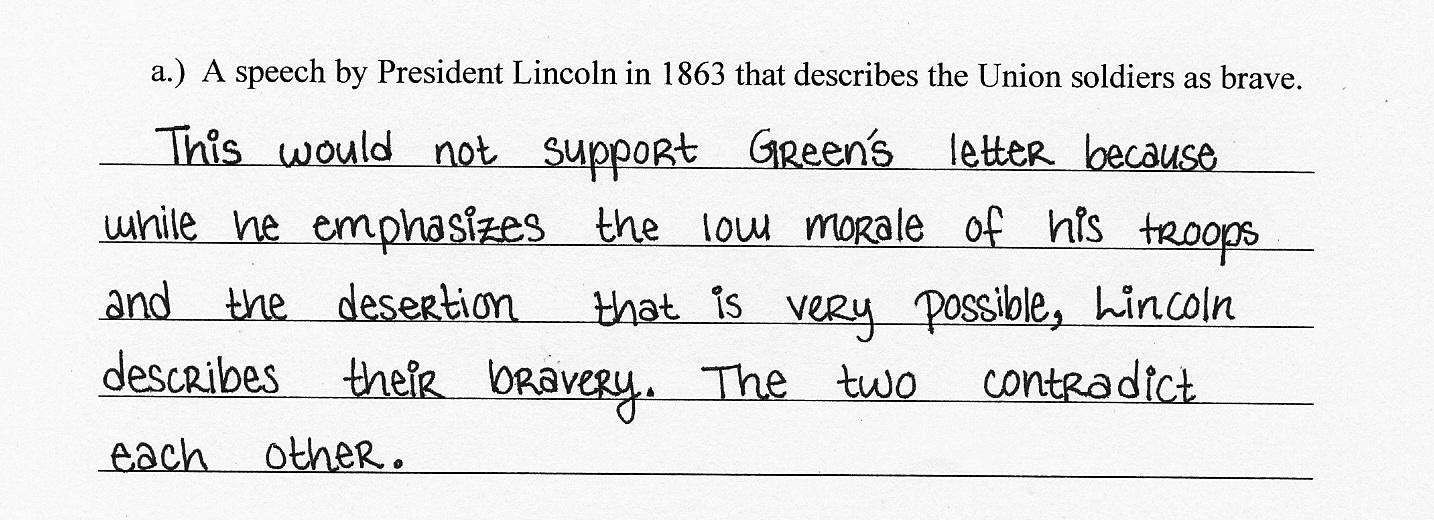 a.) A speech by President Lincoln in 1863 that describes the Union soldiers as brave.
This would not support Green's letter because
while he emphasizes the low morale of his troops
and the desertion that is very possible, Lincoln
describes their bravery. The two contradict
each other.